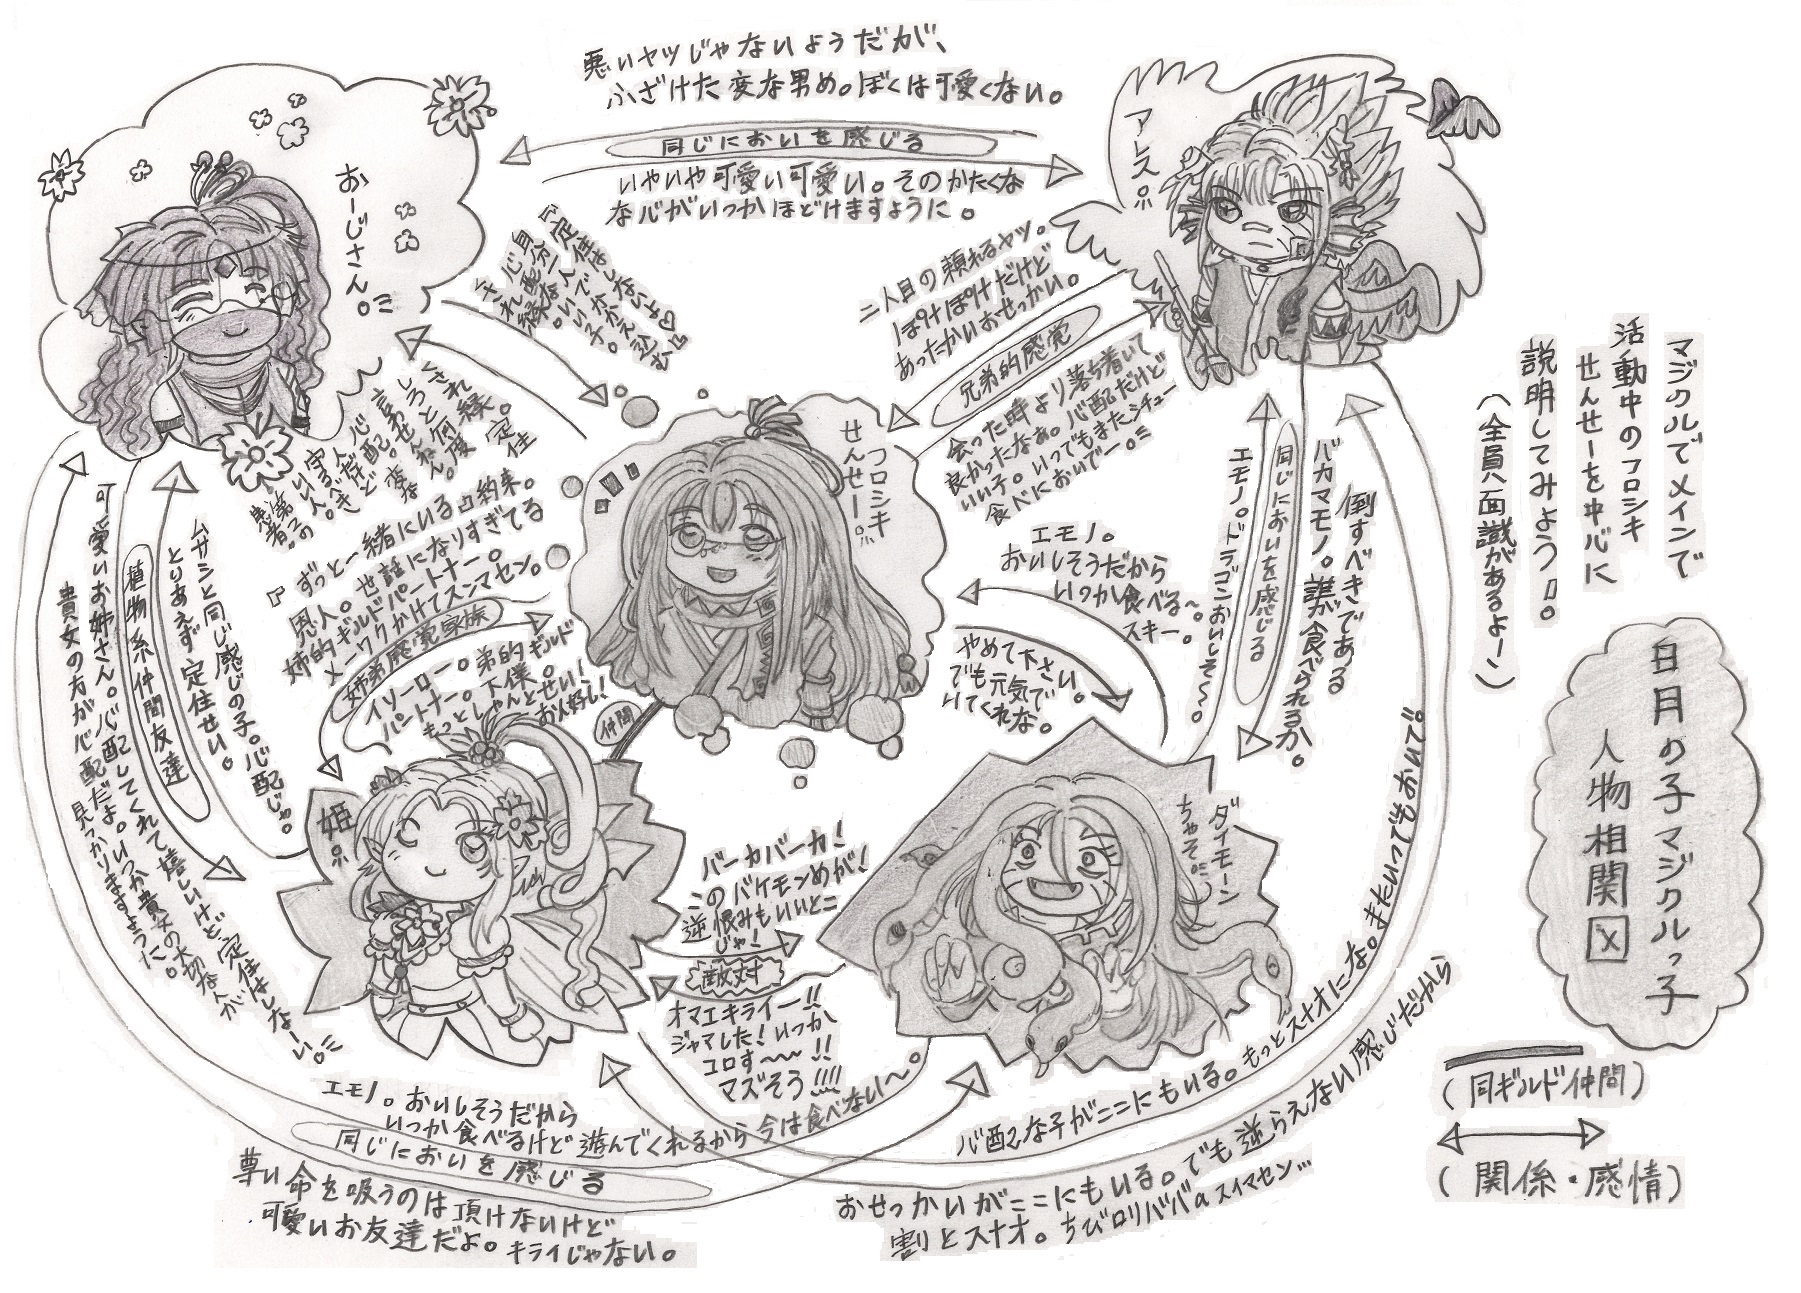 悪いヤツじゃないようだが、
ふざけた変な男め。ぼくは可愛くない。
同じにおいを感じる
いやいや可愛い可愛い。そのかたくな
な心がいつかほどけますように。
おーじさん。
アレス。
『定住はしないよ♡』
自分一人でかかえ込む
心配ないい子。
され縁。
二人目の頼れるヤツ。
ぽけぽけだけど
あったかいおせっかい。
兄弟的感覚
会った時より落ち着いて
良かったなぁ。心配だけど
いい子。いつでもまたシチュー
食べにおいでー。
フロシキ
せんせー。
『ずっと一緒にいる』約束。
恩人。世話になりすぎてる
姉的ギルドパートナー。
メーワクかけてスンマセン。
姉弟感覚家族
イソーロー。弟的ギルド
パートナー。下僕。
もっとしゃんとせい!
お人好し!
仲間
エモノ。
おいしそうだから
いつか食べる〜。
スキー。
やめて下さい。
でも元気で
いてくれな。
エモノ。ドラゴンおいしそ〜。
同じにおいを感じる
バカマモノ。誰が食べられるか。
倒すべきである
ムサシと同じ感じの子。心配じゃ。
とりあえず定住せい。
植物系仲間友達
可愛いお姉さん。心配してくれて嬉しいけど、定住はしなーい。
貴女の方が心配だよ。いつか貴女の大切な人が
見つかりますように。
姫。
ダイモーン
ちゃそ。
バーカバーカ!
このバケモンめが!
逆恨みもいいとこ
じゃ!
敵対
オマエキライー!!
ジャマした!いつか
コロす〜〜!!
マズそう!!!!
エモノ。おいしそうだから
いつか食べるけど遊んでくれるから今は食べない〜。
同じにおいを感じる
尊い命を吸うのは頂けないけど
可愛いお友達だよ。キライじゃない。
心配な子がここにもいる。もっとスナオにな。またいつでもおいで。
おせっかいがここにもいる。でも逆らえない感じだから
割とスナオ。ちびロリババアのスイマセン…
マジクルでメインで
活動中のフロシキ
せんせーを中心に
説明してみよう。
(全員八面識があるよー)
日月の子マジクルっ子
人物相関図
(同ギルド仲間)
(関係・感情)